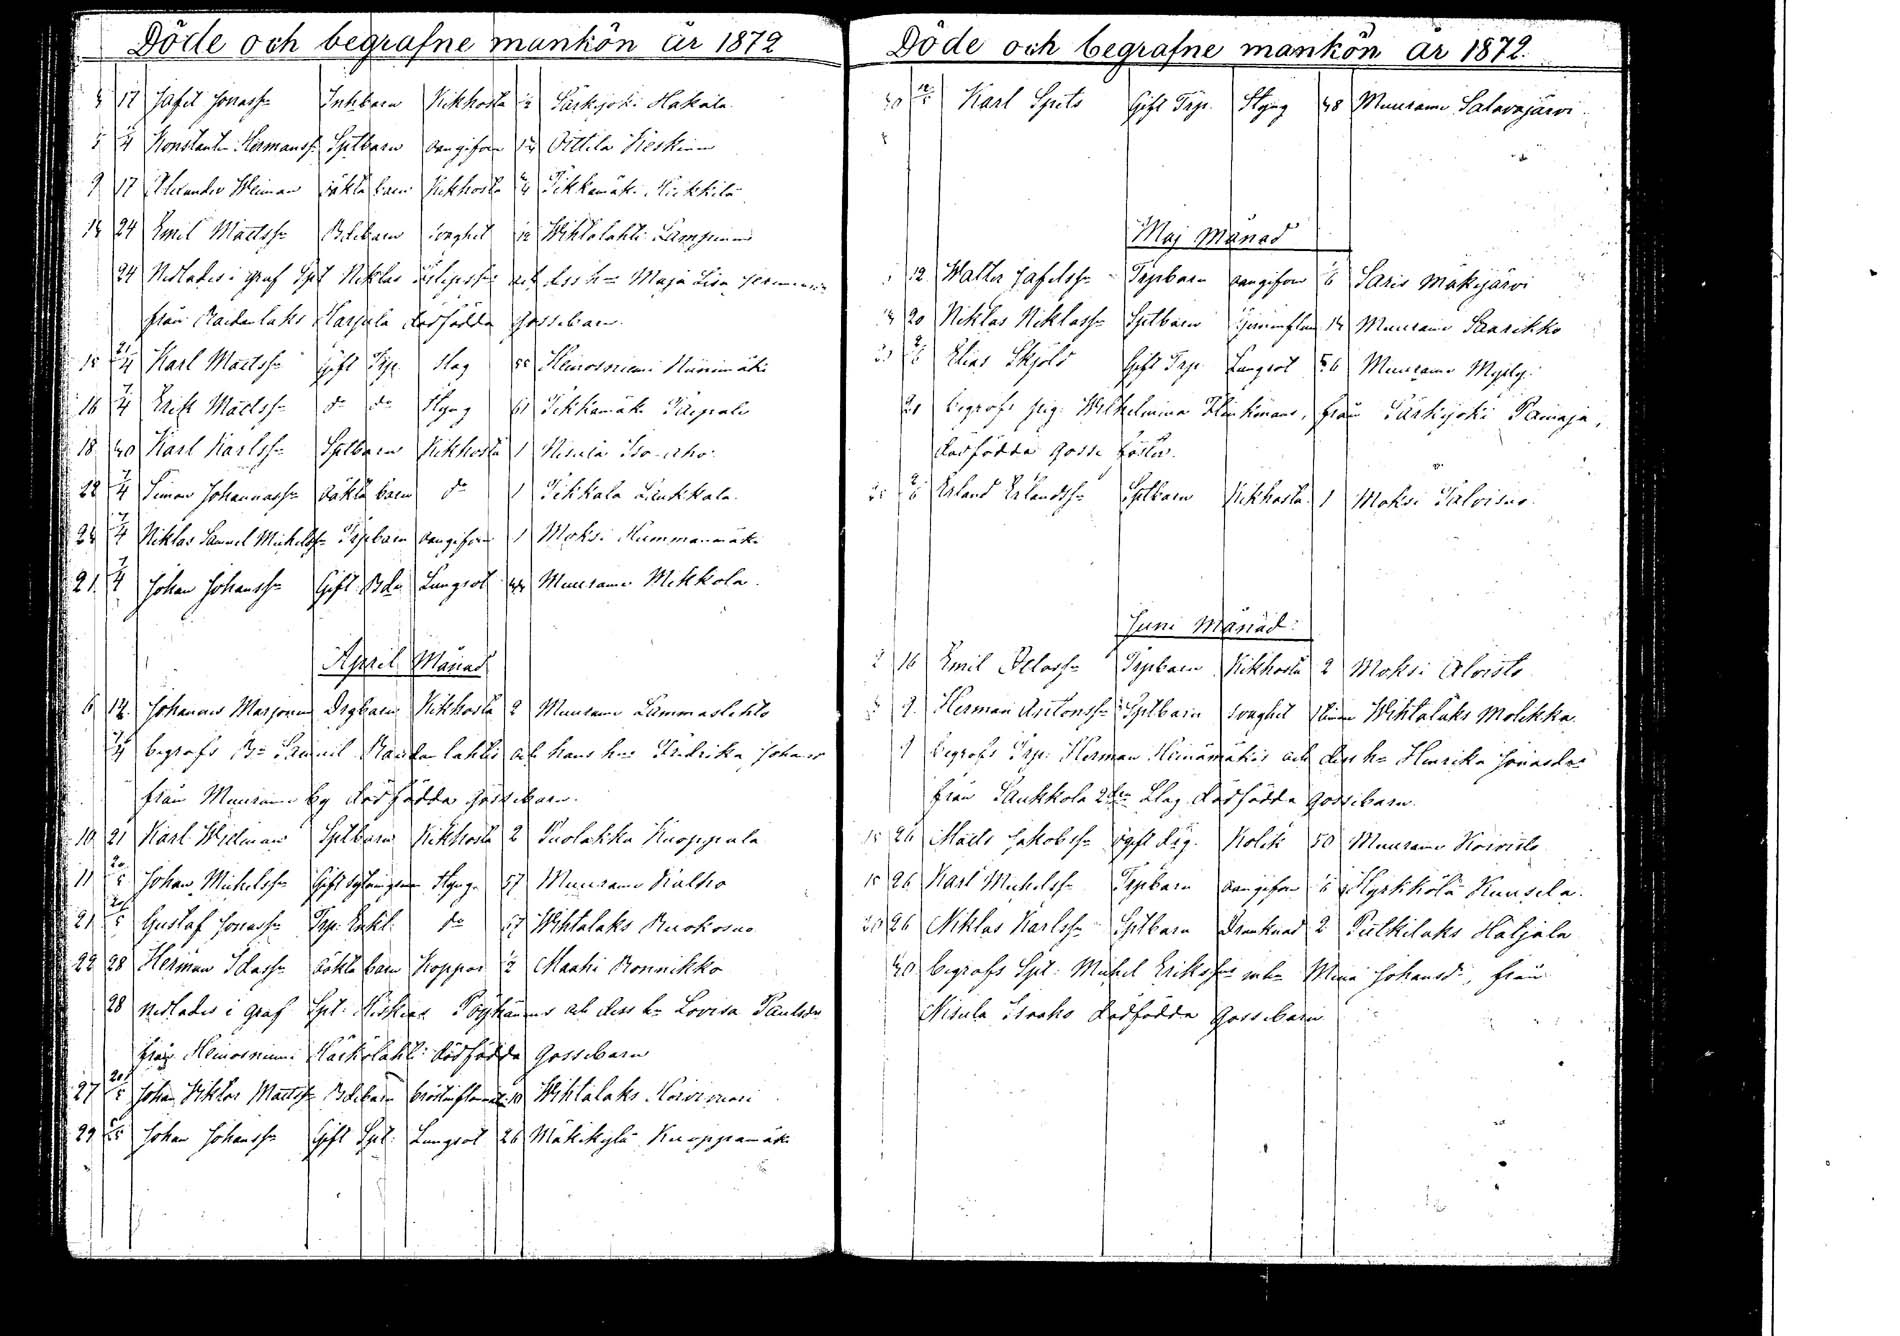 Döde och begrafne mankön år 1872
17 Jafet Jonass. Inhbarn Kikhosta ½ Särkijoki Hakala
5 Konstantin Hermanss. Sptbarn oangifven Oittila Keskinen
9 17 Alexander Weiman oäkta barn Kikhosta Tikkamäki Heikkilä
14 24 Emil Mattss. Bdebarn svaghet Wihtalahti Lampinen
24 Nedlades i graf Spt Niklas och dess h. Maja Lisa
från Raidanlaks Harjula dödfödda gossebarn.
15 21/4 Karl Mattss. Gift Trp. Slag 55 Heinosniemi Niinimäki
16 7/4 Erik Mattss. do do Styng 61 Tikkamäki
18 40 Karl Karlss. Sptbarn Kikhosta 1 Nisula Iso-aho
22 7/4 Simon Johannass. oäkta barn do 1 Tikkala Laukkala
24 7/4 Niklas Samuel Michelss. Trpbarn oangifven 1 Moksi Hummanmäki
21. 7/4 Johan Johanss. Gift Bde Lungsot 44 Muurame Mikkola.
April Månad
6 14 Johannes Marjonen Drgbarn Kikhosta 2 Muurame Lammaslehto
7/4 begrofs Bn Samuel Raidanlahtis och hans hu Fredrika
från Muurame by dödfödda gossebarn.
10 21 Karl Widman Sptbarn Kikhosta 2 Puolakka Kuoppala
11 20/5 Johan Michelss. Gift Styng. 57 Muurame Kalho
21 20/5 Gustaf Jonass. Trp: Enkl: do 57 Wihtalaks Ruokosuo
22 28 Herman Idass. oäkta barn Koppor ½ Maahi Ronnikko
28 nedlades i graf Spt: Hiskias Pöyhönens och dess h. Lovisa Paulsdr
från Heinosniemi Häkölahti dödfödda gossebarn
27 20/5 Johan Viktor Mattss. Bdebarn bröstinflammat. 10 Wihtalaks Hoivuori
29 5/5 Johan Johanss. Gift Spt: Lungsot 26 Mäkikylä Kuoppamäki
Döde och begrafne mankön år 1872.
40 12/5 Karl Spets Gift Trp. Styng 48 Muurame Salavajärvi
Maj Månad
12 Walter Jafetss. Trpbarn oangifven 6 Saris Mäkijärvi
14 20 Niklas Niklass. Sptbarn 14 Muurame Saarikko
2/6 Elias Skjöld Gift Trp Lungsot 56 Muurame Myly.
21 begrofs pig. Wilhelmina Flinkmans, från Särkijoki Painaja,
dödfödda gosse foster.
25 2/6 Erland Erlandss. Sptbarn Kikhosta. 1 Moksi Talvisuo.
Juni Månad:
2 16 Emil Trpbarn Kikhosta 2 Moksi Aloisto
9. Herman Antonss. Sptbarn svaghet Wihtalaks Molikka.
9 begrofs Trp: Herman Heinämäkis och dess h. Henrika Jonasdr
från Saukkola 2dra Llag dödfödda gossebarn.
15 26 Matts Jakobss. ogift drg. Kolik 50 Muurame Koivisto
15 26 Karl Michelss. Trpbarn oangifven Hyrkkölä Kuusela.
20 26 Niklas Karlss. Sptbarn Drunknad 2 Putkilaks Hatjala
40 begrofs Spt: Michel Erikss. och Mina Johansdr, från
Nisula Isoaho dödfödda gossebarn